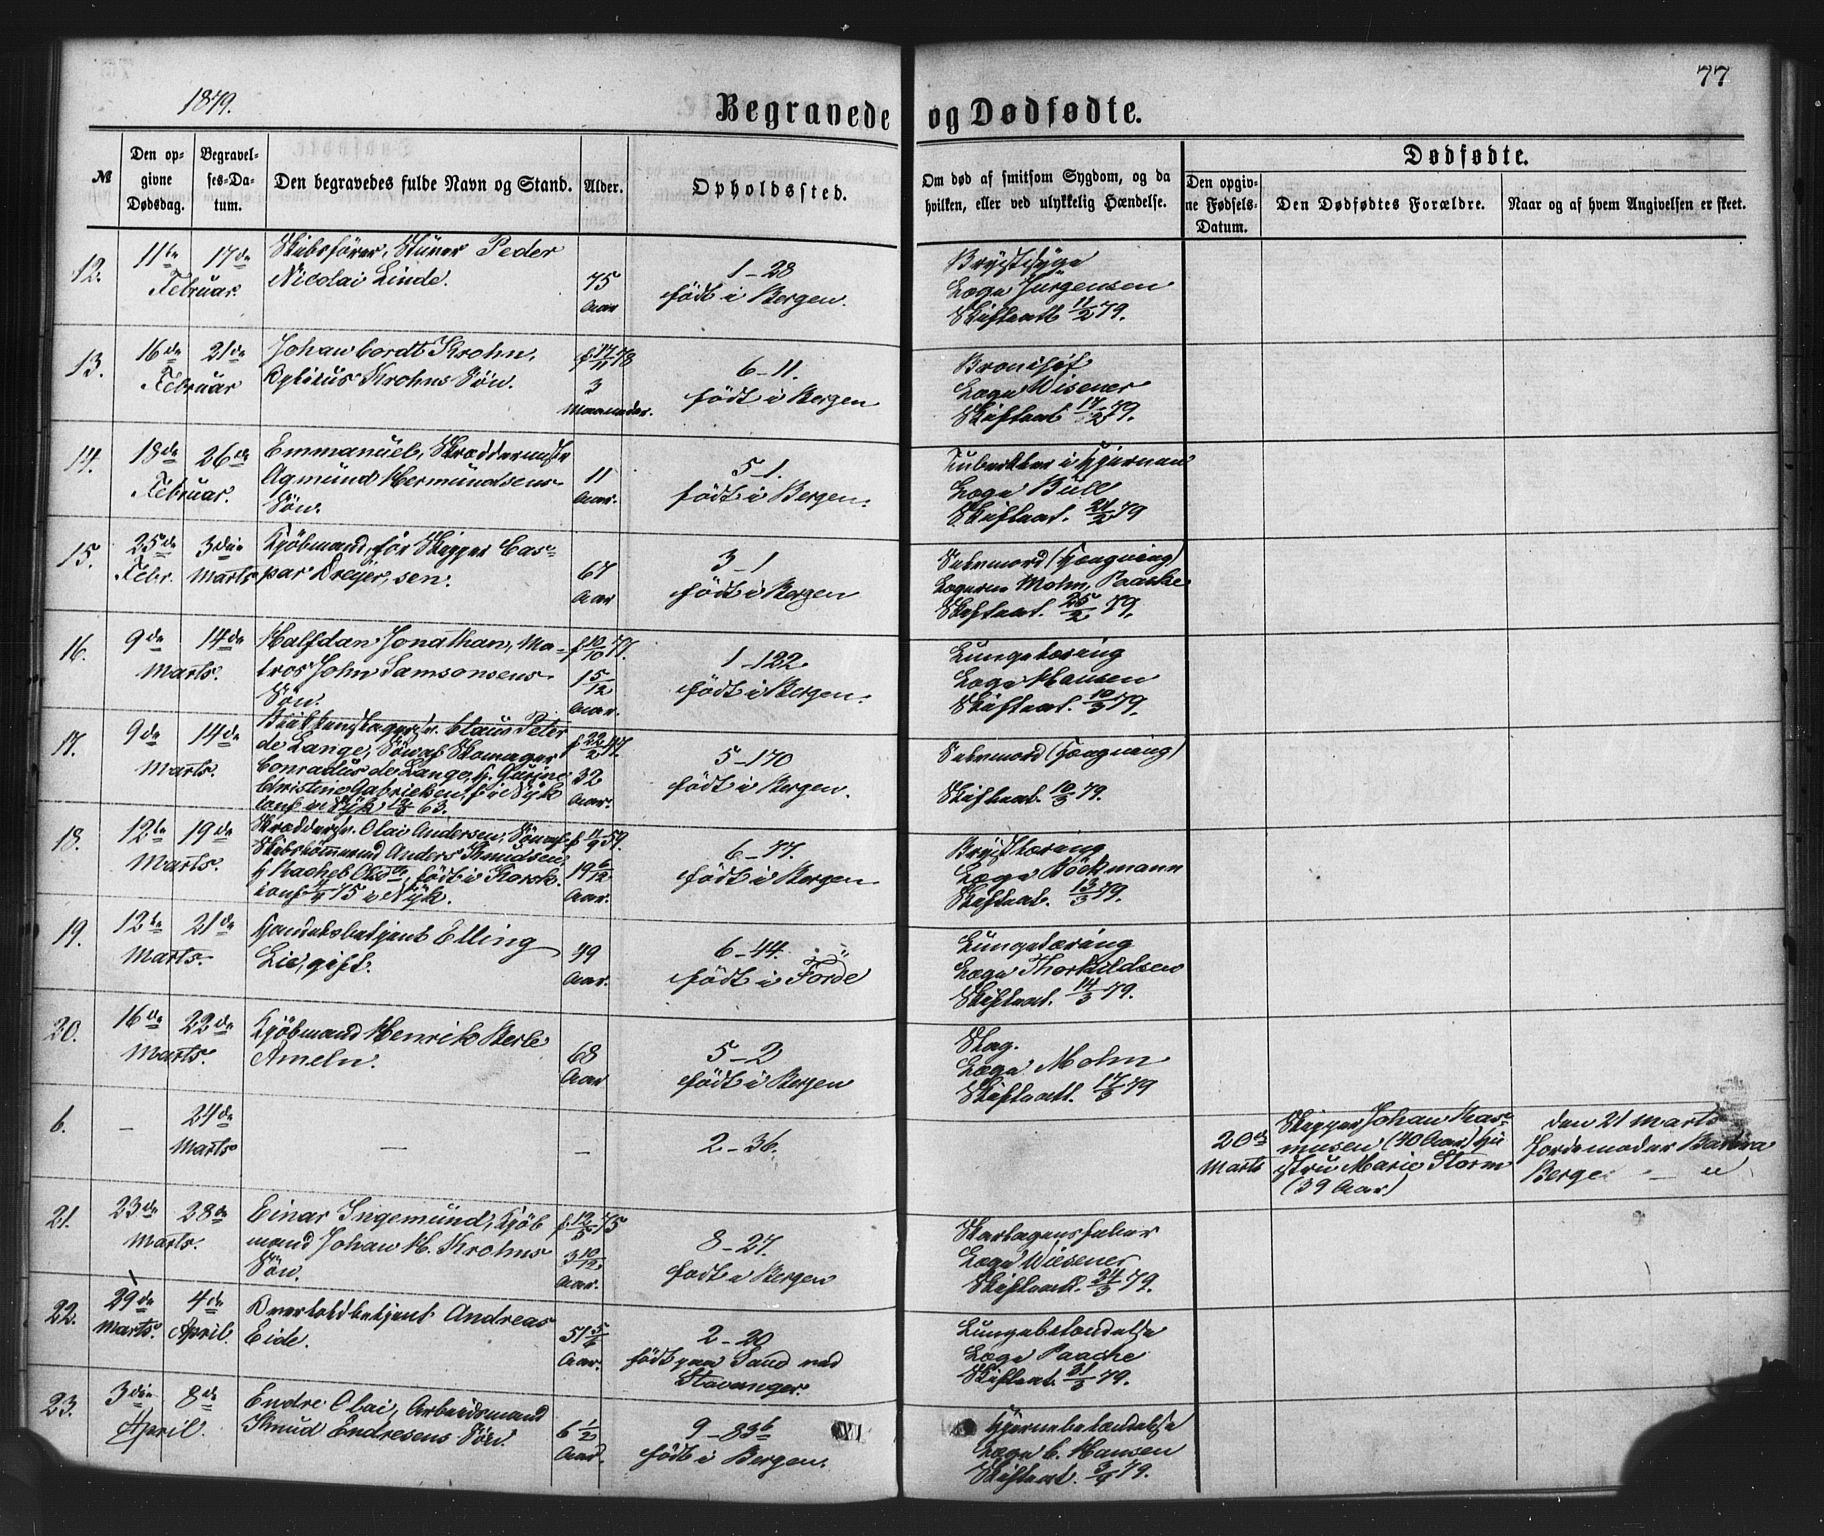 1879.
77
Begravede og Dødfødte.
№
Den opgivne Dødsdag.
Begravelses-Datum.
Den begravedes fulde Navn og Stand.
Alder.
Opholdssted.
Om død af smitsom Sygdom, og da hvilken, eller ved ulykkelig Hændelse.
Dødfødte.
Den opgivne Fødsels-Datum.
Den Dødfødtes Forældre.
Naar og af hvem Angivelsen er skeet.
12.
11te 17de
Februar.
Skibsfører, Peder
Nicolai Linde.
75
Aar
1-28
født i Bergen.
Brystsyge
Læge Jürgensen
Skifteatt 11/2 79.
13.
16de 21de
Februar
Johan Cordt Krohn,
Krohns Søn.
f 17/11 78
3
Maaneder.
6-11.
født i Bergen
Læge Wisener
Skifteat 17/2 79.
14.
18de 26de
Februar.
Emmanuel, Skræddermestr
Agmund Hermundsens
Søn.
11
Aar.
5-1.
født i Bergen.
Tuberkler i Hjernen
Læge Bull
Skifteat. 21/2 79
15.
25de 3die
Febr. Marts
Kjøbmand, før Skipper Cas-
par Dreyer, sen.
67
Aar
3-1
født i Bergen
Selvmord (Hængning)
Lægerne Mohn, Paaske
Skifteat. 25/2 79.
16.
9de 14de
Marts.
Halfdan Jonathan, Ma-
tros John Samsonsens
Søn.
f 10/10 77.
1 5/12
Aar.
1-122
født i Bergen.
Lungetæring
Læge Hansen
Skifteat. 10/3 79.
17.
9de 14de
Marts.
Claus Peter
de Lange, Søn af Skomager
Conradus de Lange, H. Gurine
Christine Gabrielsen, f. i Nyk
conf. i Nyk. 63.
f 22/2 47.
32
Aar.
5-170
født i Bergen.
Selvmord (Hængning)
Skifteat. 10/3 79.
18.
12te 19de
Marts.
Skrædders. Olai Andersen, Søn af
Skibstømmermd Anders Knudsen,
H Rachel Olsdtr, født i Korsk.
conf 75 i Nyk.
f 11/9 59.
19 6/12
Aar.
6-77.
født i Bergen
Brysttæring
Læge Böckmann
Skifteat. 13/3 79.
19.
12te 21de
Marts.
Handelsbetjent Elling
Lie, gift.
49
Aar.
6-44.
født i Førde
Lungetæring
Læge Thorkildsen
Skifteat. 14/3 79.
20.
16de 22de
Marts.
Kjøbmand Henrik Berle
Ameln.
68
Aar
5-2
født i Bergen
Slag.
Læge Mohn
Skifteatt. 17/3 79
6.
–
24de
Marts
–
–
2-36.
20de
Marts
Skipper Johan Ras-
musen (40 Aar) Hu
stru Marie Storm
(39 Aar)
den 21 Marts
Jordemoder
Berge
21.
23de 28de
Marts.
Einar Ingemund, Kjøb
mand Johan H. Krohns
Søn.
f. 12/5 75
3 10/12
Aar.
8-27.
født i Bergen
Skarlagensfeber
Læge Wiesener
Skifteatt. 24/3 79.
22.
29de 4de
Marts. April.
Andreas
Eide.
51 5/6
Aar.
2-20
født paa Sand ved
Stavanger.
Lungebetændelse
Læge Paaske
Skifteat. 31/3 79.
23.
3die 8de
April.
Endre Olai, Arbeidsmand
Knud Endresens Søn.
6 1/2
Aar.
9-83b
født i Bergen.
Hjernebetændelse
Læge C. Hansen
Skifteat. 3/4 79.